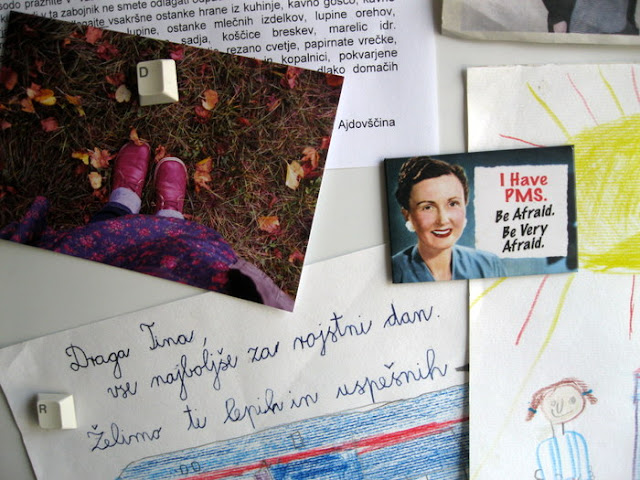 odlagati
vsakršne ostanke hrane iz kuhinje, kavno goščo,
lupine, ostanke mlečnih izdelkov, lupine orehov,
sadja, koščice breskev, marelic idr.
rezano cvetje, papirnate vrečke,
kopalnici, pokvarjene
domačih
Ajdovščina
D
I Have
PMS.
Be Afraid.
Be Very
Afraid.
Draga Tina,
vse najboljše za rojstni dan.
Želimo ti lepih in uspešnih
R